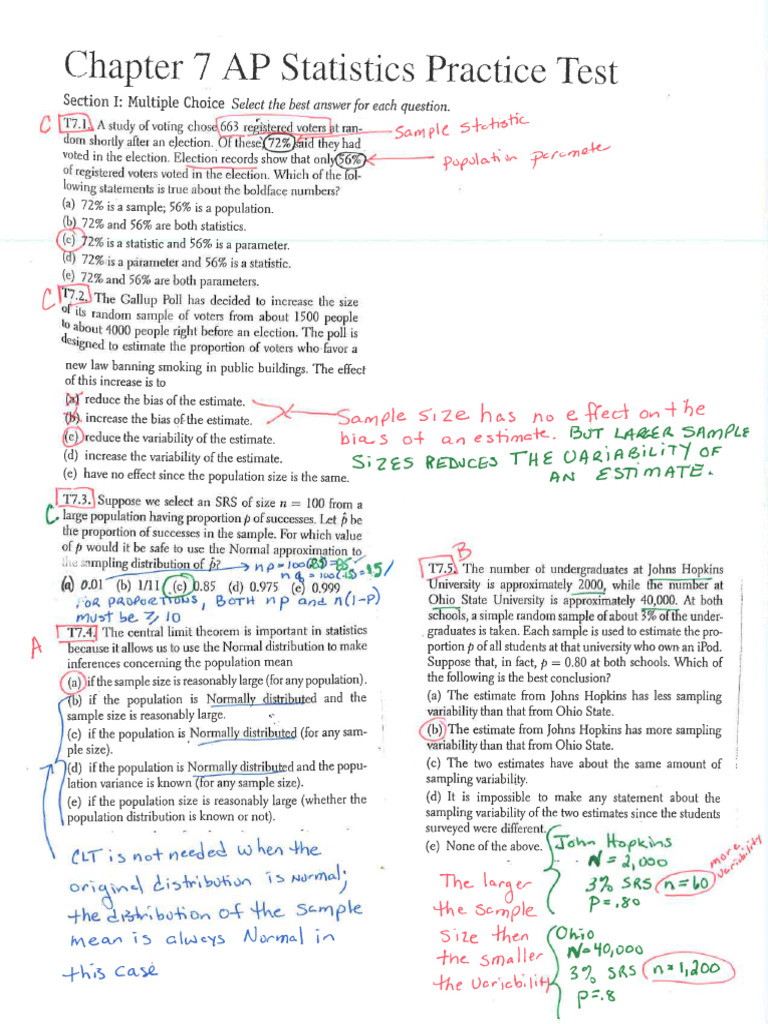 Chapter 7 AP Statistics Practice Test
Section I: Multiple Choice Select the best answer for each question.
C T7.1. A study of voting chose 663 registered voters at ran-
dom shortly after an election. Of these, 72% said they had
voted in the election. Election records show that only 56%
of registered voters voted in the election. Which of the fol-
lowing statements is true about the boldface numbers?
(a) 72% is a sample; 56% is a population.
(b) 72% and 56% are both statistics.
(c) 72% is a statistic and 56% is a parameter.
(d) 72% is a parameter and 56% is a statistic.
(e) 72% and 56% are both parameters.
Sample Statistic
Population
C T7.2. The Gallup Poll has decided to increase the size
of its random sample of voters from about 1500 people
to about 4000 people right before an election. The poll is
designed to estimate the proportion of voters who favor a
new law banning smoking in public buildings. The effect
of this increase is to
(a) reduce the bias of the estimate.
(b) increase the bias of the estimate.
(c) reduce the variability of the estimate.
(d) increase the variability of the estimate.
(e) have no effect since the population size is the same.
Sample size has no effect on the
bias of an estimate. BUT LARGER SAMPLE
SIZES REDUCES THE VARIABILITY OF
AN ESTIMATE.
C T7.3. Suppose we select an SRS of size n = 100 from a
large population having proportion p of successes. Let p̂ be
the proportion of successes in the sample. For which value
of p would it be safe to use the Normal approximation to
the sampling distribution of p̂?
(a) 0.01 (b) 1/11 (c) 0.85 (d) 0.975 (e) 0.999
FOR PROPORTIONS, BOTH np AND n(1-P)
must be ≥ 10
A T7.4. The central limit theorem is important in statistics
because it allows us to use the Normal distribution to make
inferences concerning the population mean
(a) if the sample size is reasonably large (for any population).
(b) if the population is Normally distributed and the
sample size is reasonably large.
(c) if the population is Normally distributed (for any sam-
ple size).
(d) if the population is Normally distributed and the popu-
lation variance is known (for any sample size).
(e) if the population size is reasonably large (whether the
population distribution is known or not).
CLT is not needed when the
original distribution is normal;
the distribution of the sample
mean is always Normal in
this case
B
T7.5. The number of undergraduates at Johns Hopkins
University is approximately 2000, while the number at
Ohio State University is approximately 40,000. At both
schools, a simple random sample of about 3% of the under-
graduates is taken. Each sample is used to estimate the pro-
portion p of all students at that university who own an iPod.
Suppose that, in fact, p = 0.80 at both schools. Which of
the following is the best conclusion?
(a) The estimate from Johns Hopkins has less sampling
variability than that from Ohio State.
(b) The estimate from Johns Hopkins has more sampling
variability than that from Ohio State.
(c) The two estimates have about the same amount of
sampling variability.
(d) It is impossible to make any statement about the
sampling variability of the two estimates since the students
surveyed were different.
(e) None of the above.
John Hopkins
N = 2,000
3% SRS n=60
P=.80
more
variability
The larger
the sample
size then
the smaller
the variability
Ohio
N=40,000
3% SRS n=1,200
p=.8